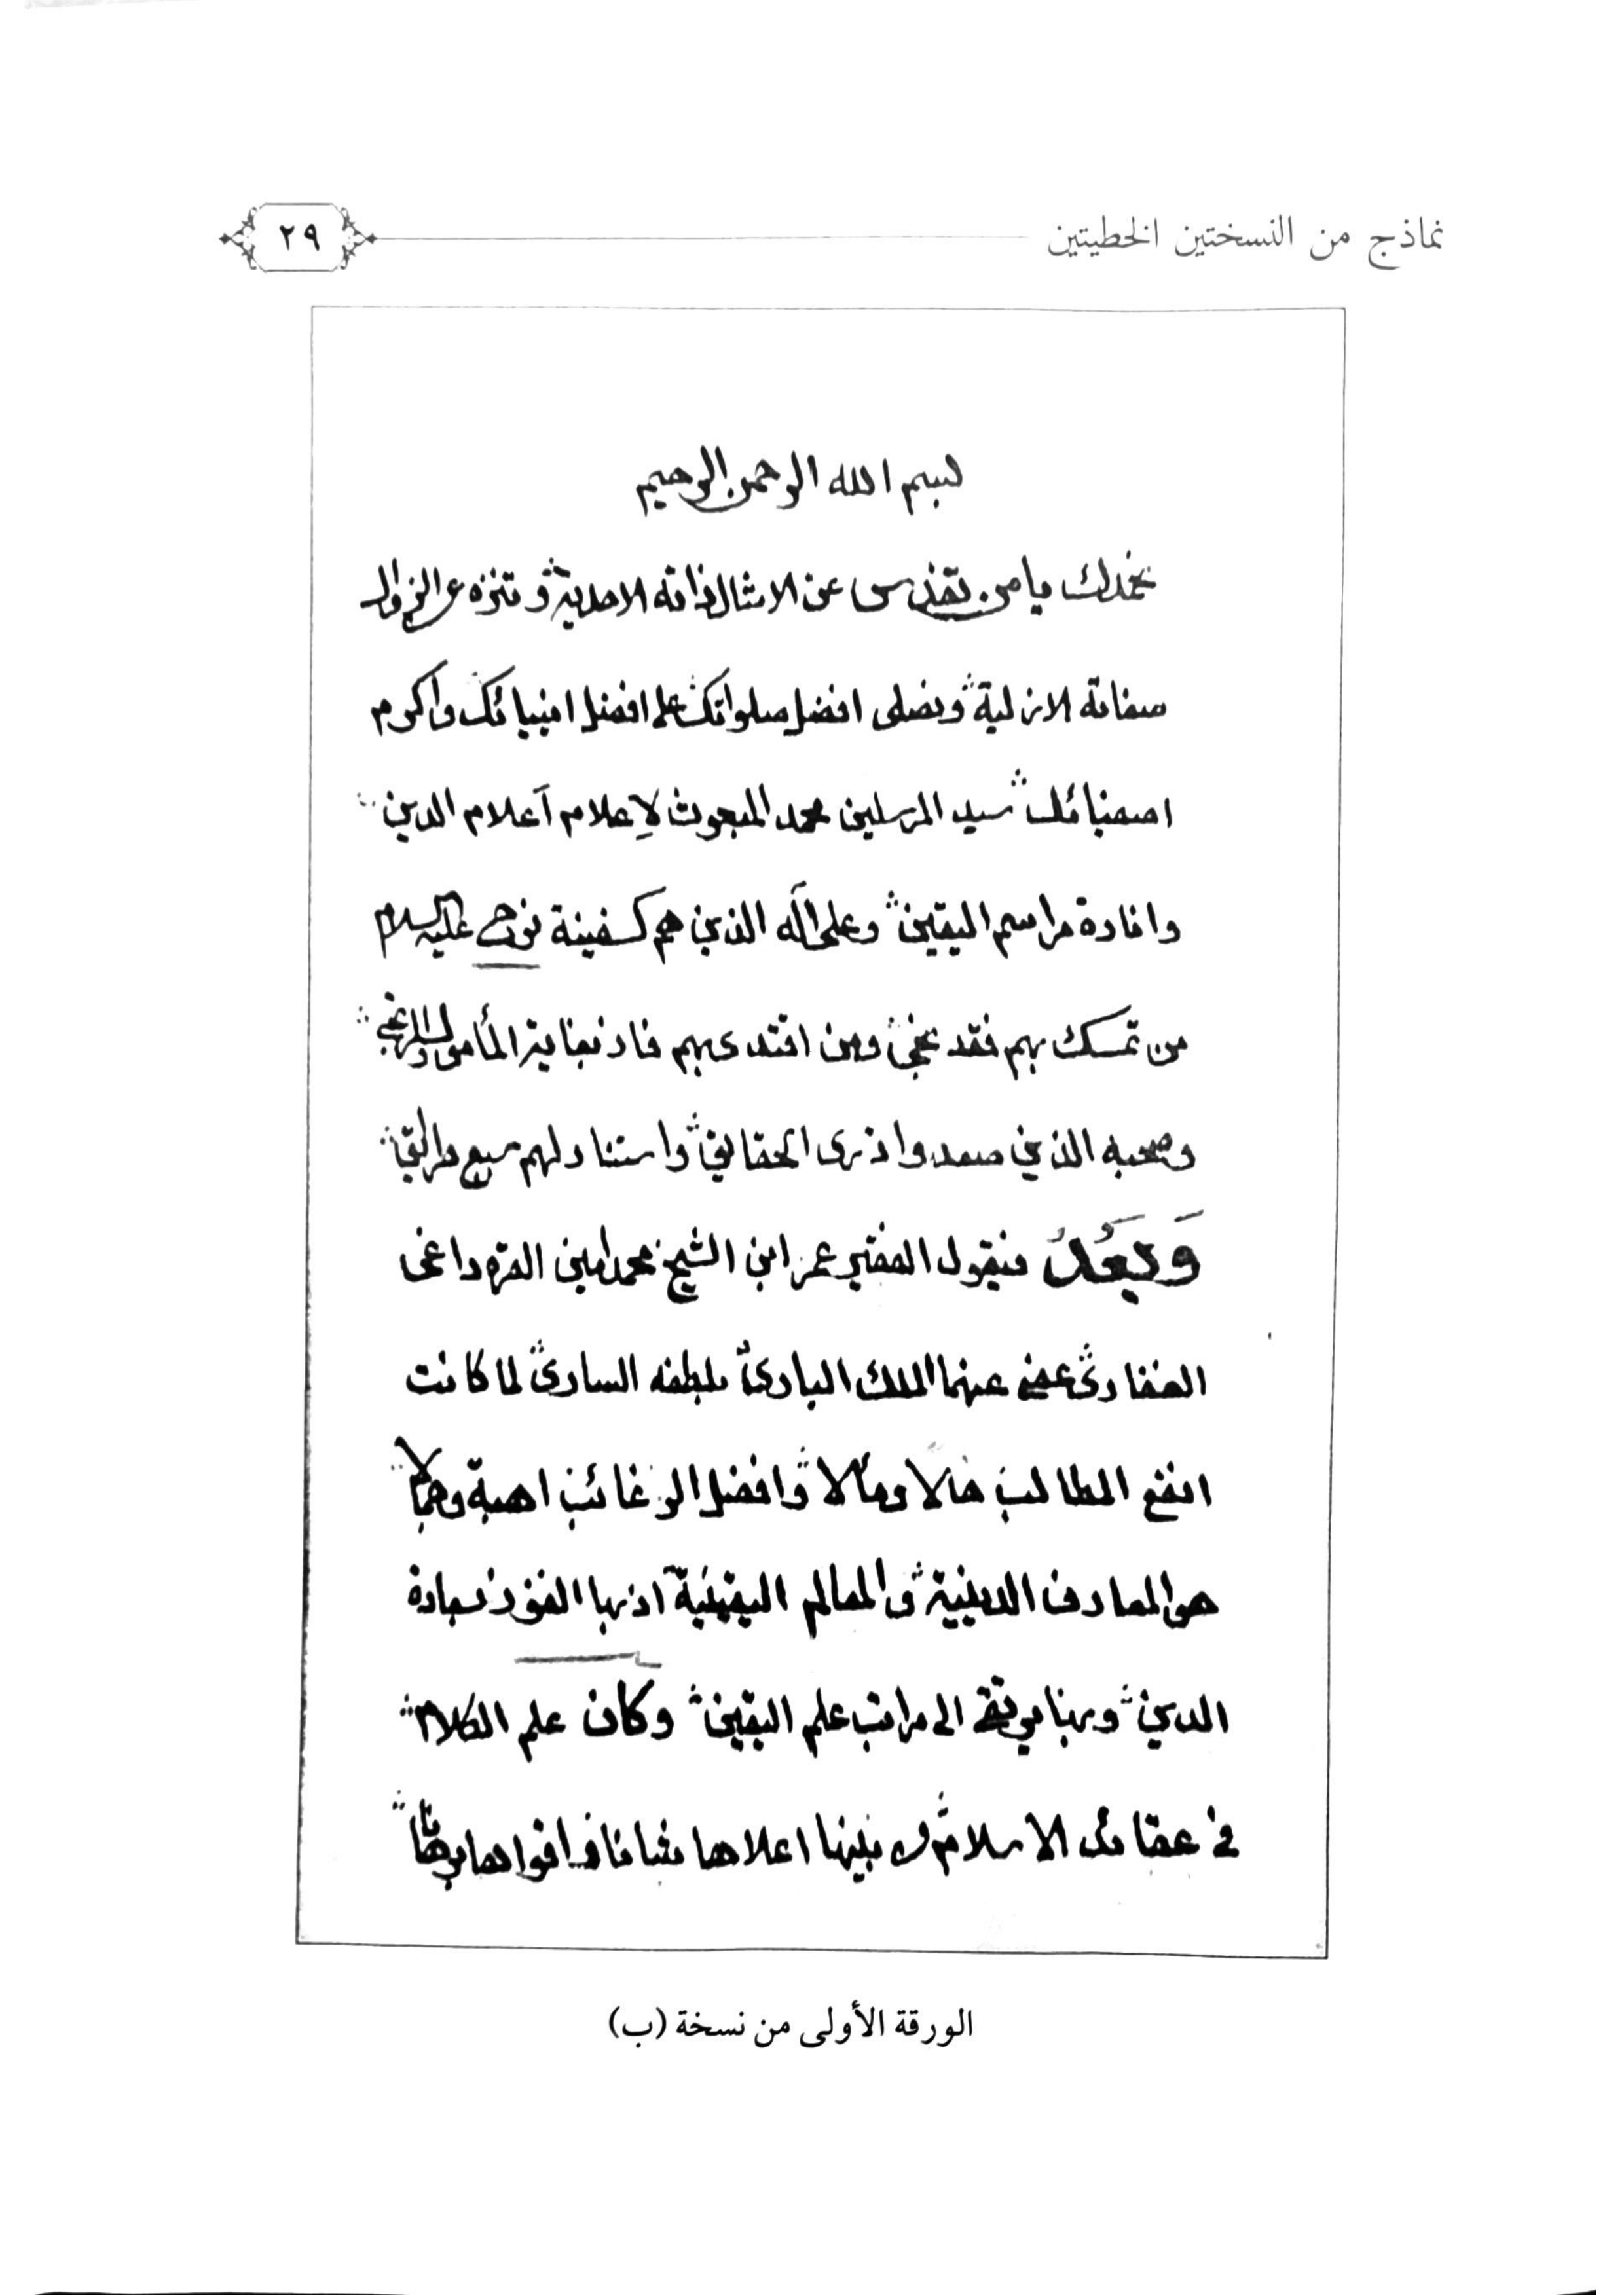 نماذج من النسختين الخطيتين
٢٩
بسم الله الرحمن الرحيم
نحمدك يا من تقدس عن الامثال ذاته الاحدية وتنزه عن الزوال
صفاته الازلية ونصلى افضل صلواتك على افضل انبيائك واكرم
اصفيائك سيد المرسلين محمد المبعوث لإعلام أعلام الدين
وافادة مراسم اليقين وعلى آله الذين هم كسفينة نوح عليه السلام
من تمسك بهم فقد نجى ومن اقتدى بهم فاز بغاية المأمول
وصحبه الذين صعدوا ذرى الحقايق واستنار لهم
وَبَعْدُ فيقول الفقير عمر ابن الشيخ محمد امين القره داغى
عفى عنهما الملك البارى بلطفه السارى لما كانت
انفع المطالب حالا ومآلا وافضل الرغائب
هو المعارف الدينية والمعالم اليقينية اذ بها الفوز بسعادة
الدين وبها يرتقى الى مراتب علم اليقين وكان علم الكلام
فى عقائد الاسلام من بينها اعلاها شانا واقواها برهانا
الورقة الأولى من نسخة (ب)